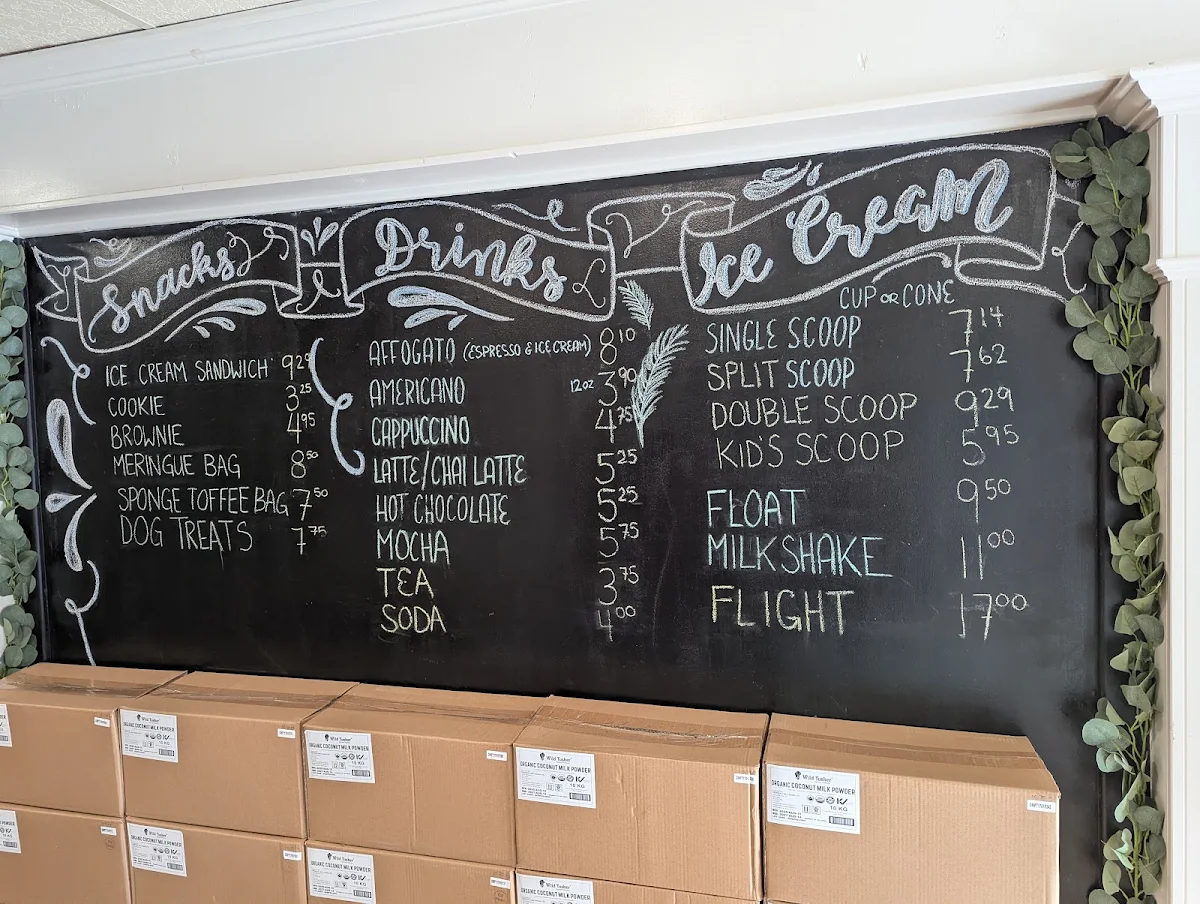 Snacks
ICE CREAM SANDWICH 9 29
COOKIE 3 25
BROWNIE 4 95
MERINGUE BAG 8 50
SPONGE TOFFEE BAG 7 50
DOG TREATS 7 75
Drinks
AFFOGATO (ESPRESSO & ICE CREAM) 8 10
AMERICANO 12oz 3 90
CAPPUCCINO 4 75
LATTE/CHAI LATTE 5 25
HOT CHOCOLATE 5 25
MOCHA 5 75
TEA 3 75
SODA 4 00
Ice Cream
CUP OR CONE
SINGLE SCOOP 7 14
SPLIT SCOOP 7 62
DOUBLE SCOOP 9 29
KID'S SCOOP 5 95
FLOAT 9 50
MILKSHAKE 11 00
FLIGHT 17 00
Wild Tusker
ORGANIC COCONUT MILK POWDER
10 KG
Wild Tusker
ORGANIC COCONUT MILK POWDER
10 KG
Wild Tusker
ORGANIC COCONUT MILK POWDER
10 KG
Wild Tusker
ORGANIC COCONUT MILK POWDER
10 KG
Wild Tusker
ORGANIC COCONUT MILK POWDER
10 KG
Wild Tusker
ORGANIC COCONUT MILK POWDER
Wild Tusker
ORGANIC COCONUT MILK POWDER